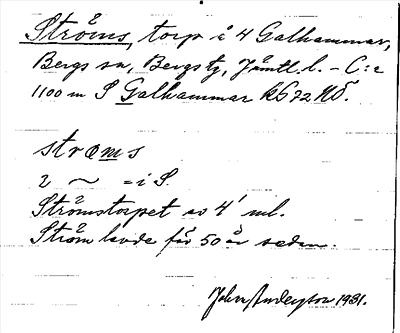 Ströms, torp å 4 Galhammar,
Bergs sn, Bergs tg, Jämtl. l. - C:a
1100 m S Galhammar kb 72 NÖ.
strøms
2 ~ = i S.
Strömstorpet av 4' ml.
Ström levde för 50 år sedan.
John Anderson 1931.